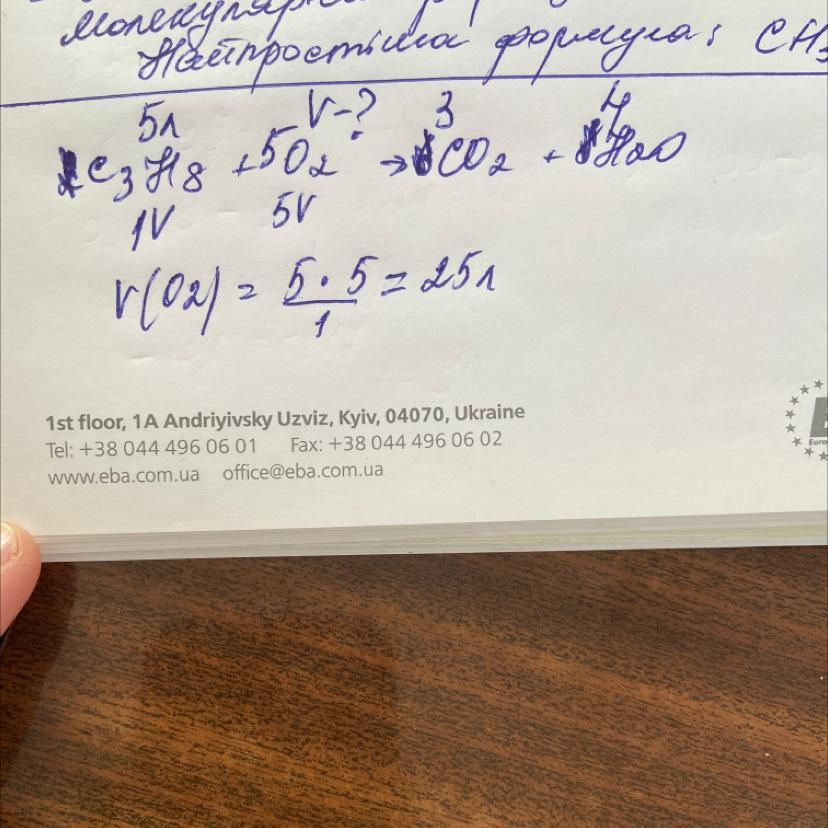 Молекулярна
Найпростіша формула: CH3
5л V-? 3 4
C3H8 + 5O2 → CO2 + H2O
1V 5V
V(O2) = 5 · 5 / 1 = 25л
1st floor, 1A Andriyivsky Uzviz, Kyiv, 04070, Ukraine
Tel: +38 044 496 06 01 Fax: +38 044 496 06 02
www.eba.com.ua office@eba.com.ua